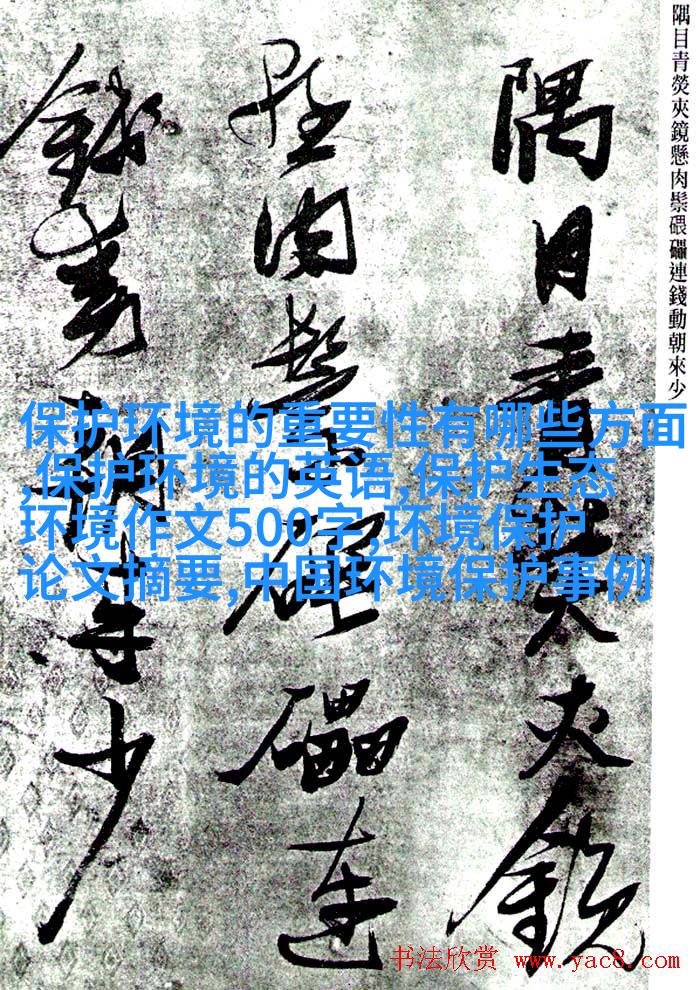 隅目青熒夾鏡懸肉鬃碨礧連錢動朝來少
隅目青熒夾鏡
懸肉鬃碨礧連
錢動朝來少
保护环境的重要性有哪些方面
,保护环境的英语,保护生态
环境作文500字,环境保护
论文摘要,中国环境保护事例
书法欣赏 www.yac8.com